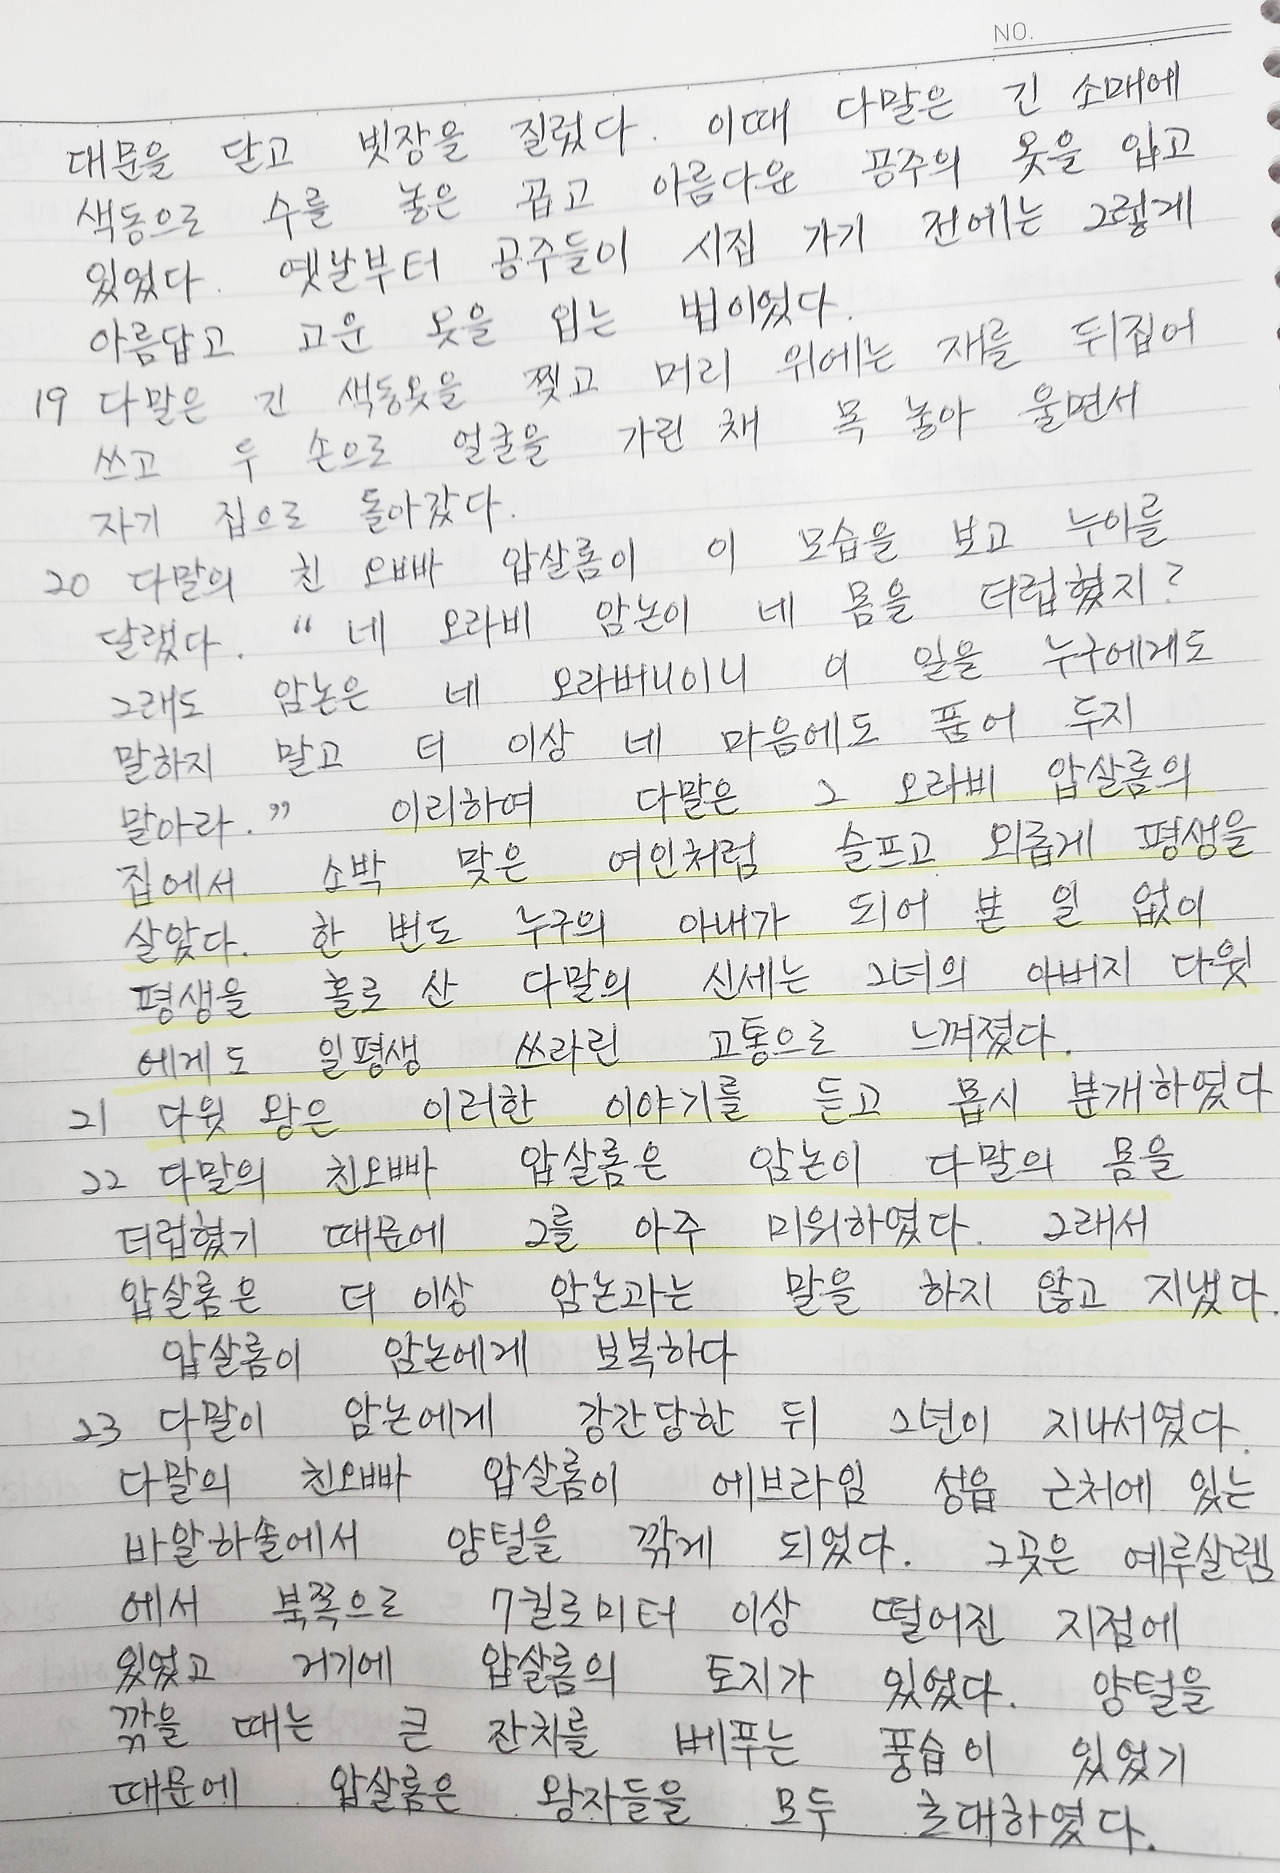 NO.
대문을 닫고 빗장을 질렀다. 이때 다말은 긴 소매에
색동으로 수를 놓은 곱고 아름다운 공주의 옷을 입고
있었다. 옛날부터 공주들이 시집 가기 전에는 그렇게
아름답고 고운 옷을 입는 법이었다.
19 다말은 긴 색동옷을 찢고 머리 위에는 재를 뒤집어
쓰고 두 손으로 얼굴을 가린 채 목 놓아 울면서
자기 집으로 돌아갔다.
20 다말의 친 오빠 압살롬이 이 모습을 보고 누이를
달랬다. “네 오라비 암논이 네 몸을 더럽혔지?
그래도 암논은 네 오라버니이니 이 일을 누구에게도
말하지 말고 더 이상 네 마음에도 품어 두지
말아라.” 이리하여 다말은 그 오라비 압살롬의
집에서 소박 맞은 여인처럼 슬프고 외롭게 평생을
살았다. 한 번도 누구의 아내가 되어 본 일 없이
평생을 홀로 산 다말의 신세는 그녀의 아버지 다윗
에게도 일평생 쓰라린 고통으로 느껴졌다.
21 다윗 왕은 이러한 이야기를 듣고 몹시 분개하였다
22 다말의 친오빠 압살롬은 암논이 다말의 몸을
더럽혔기 때문에 그를 아주 미워하였다. 그래서
압살롬은 더 이상 암논과는 말을 하지 않고 지냈다.
압살롬이 암논에게 보복하다
23 다말이 암논에게 강간당한 뒤 2년이 지나서였다.
다말의 친오빠 압살롬이 에브라임 성읍 근처에 있는
바알하솔에서 양털을 깎게 되었다. 그곳은 예루살렘
에서 북쪽으로 7킬로미터 이상 떨어진 지점에
있었고 거기에 압살롬의 토지가 있었다. 양털을
깎을 때는 큰 잔치를 베푸는 풍습이 있었기
때문에 압살롬은 왕자들을 모두 초대하였다.